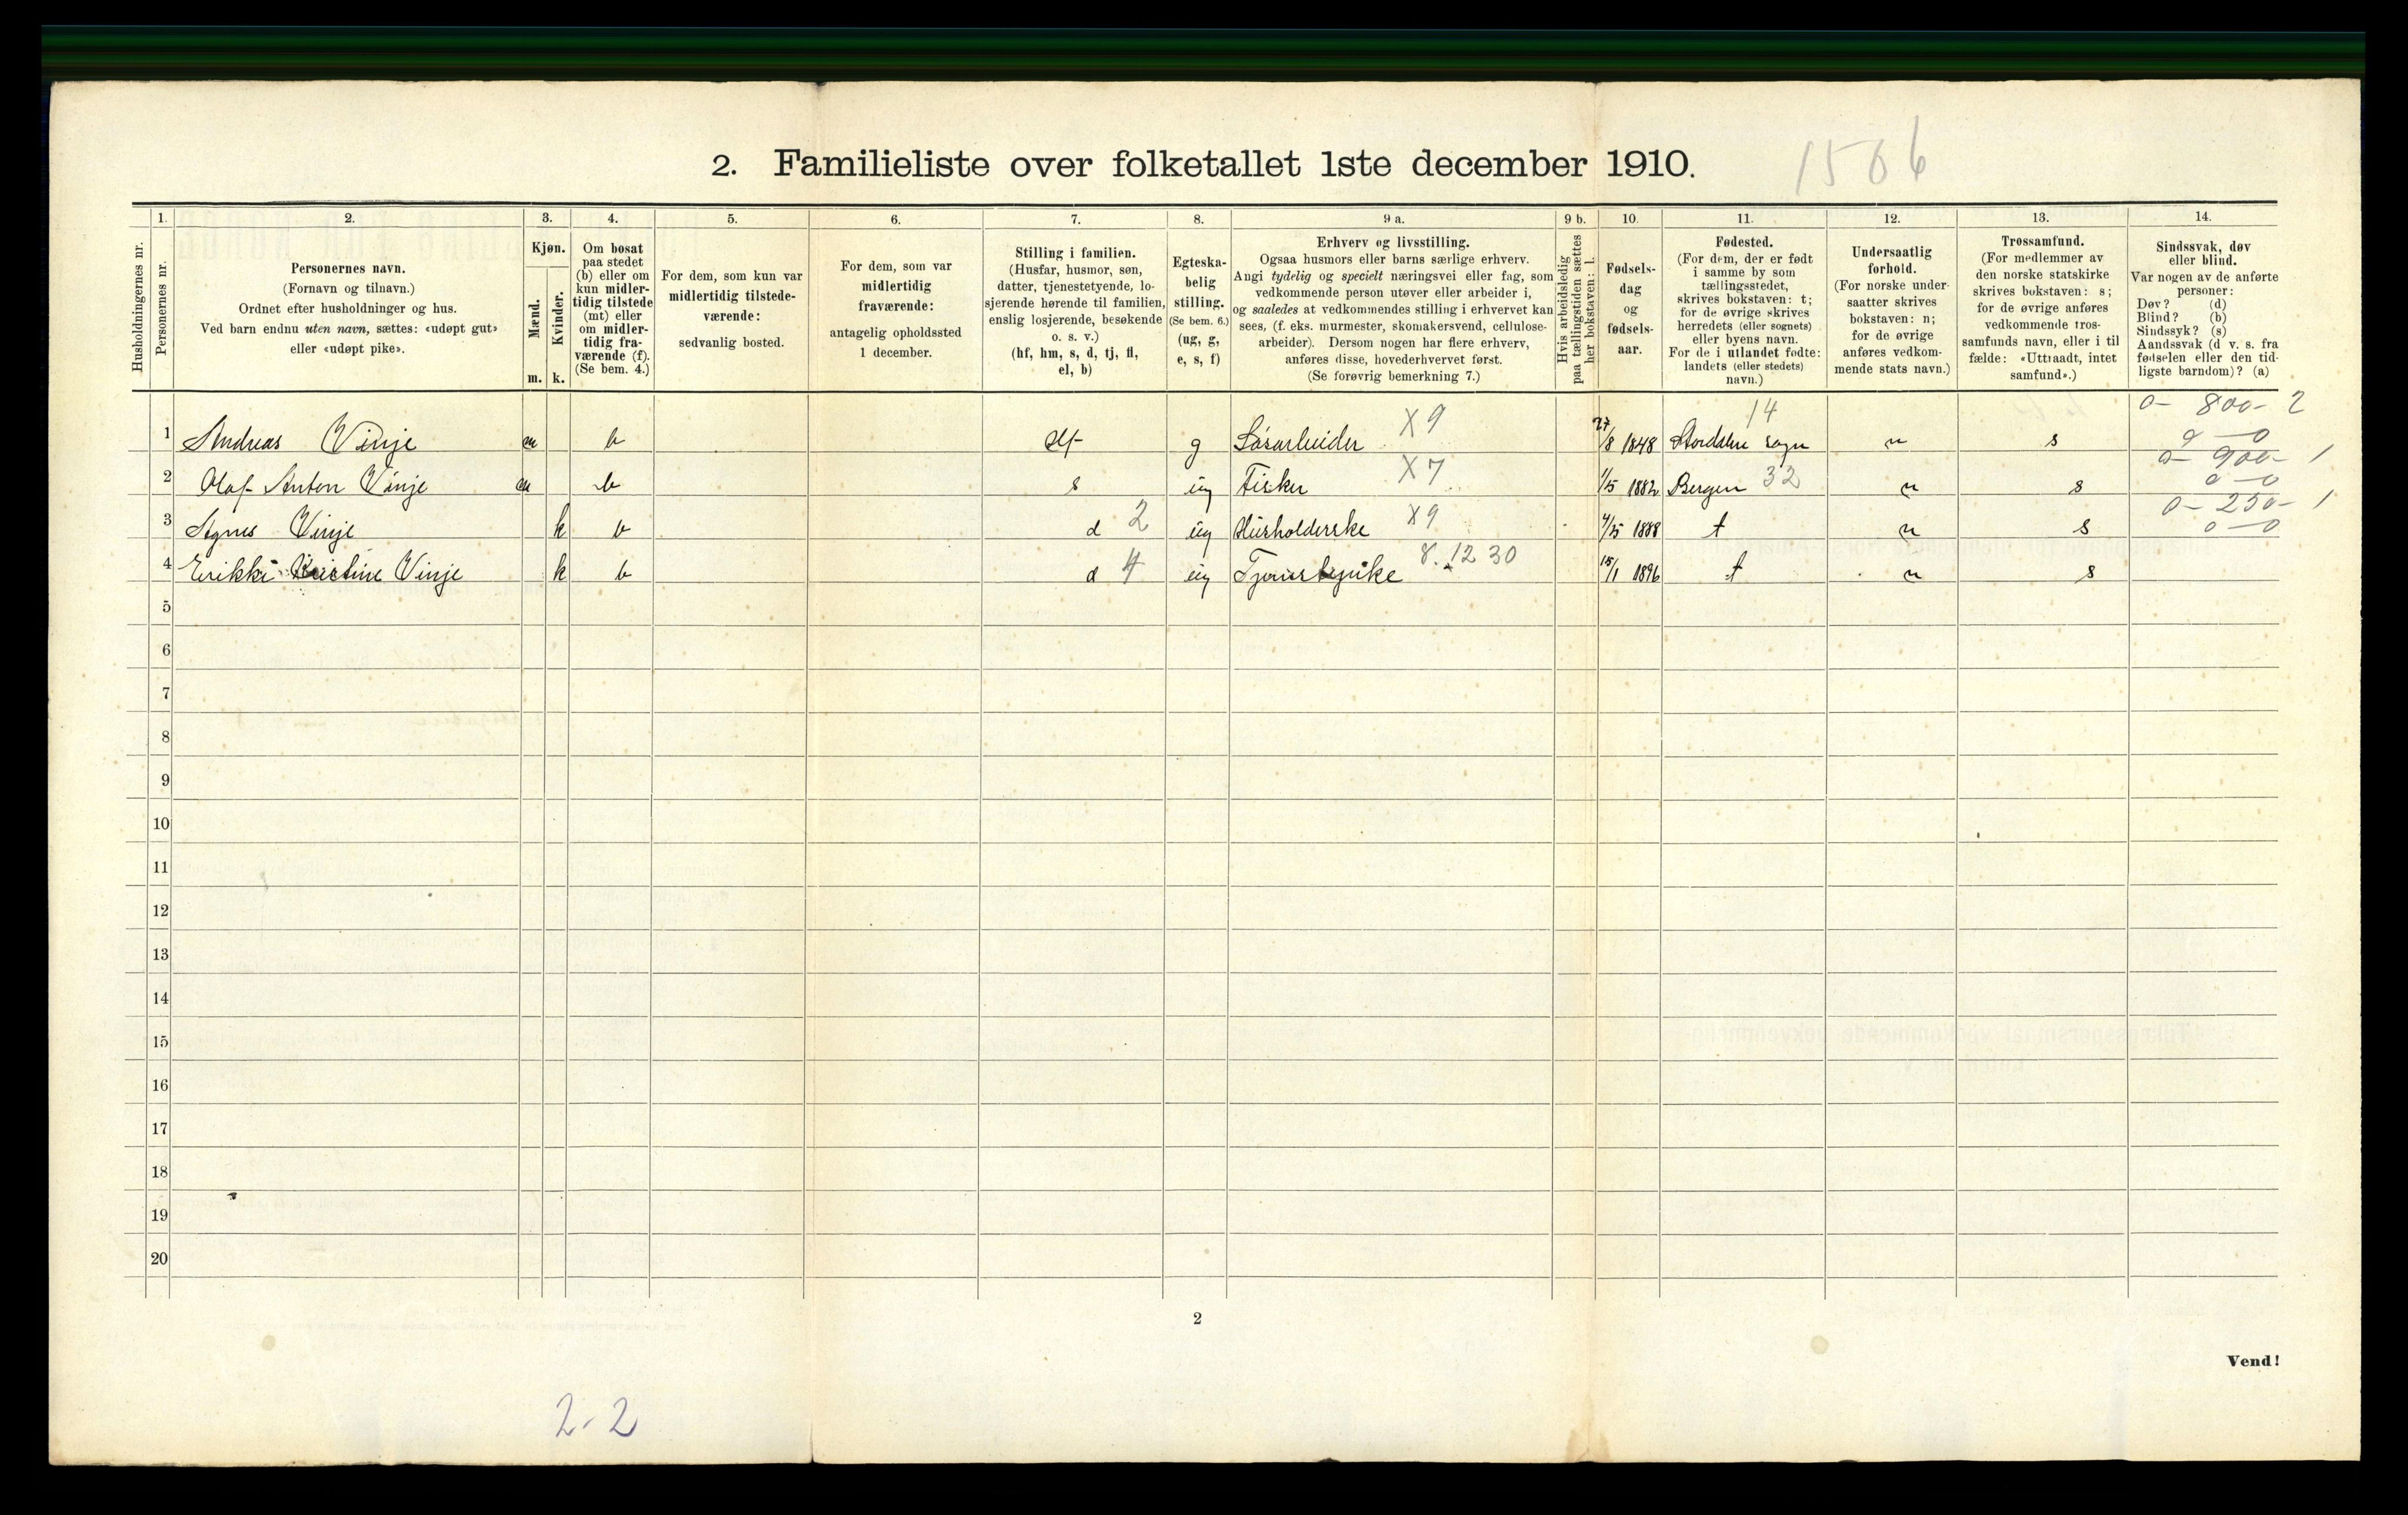 2. Familieliste over folketallet 1ste december 1910.
1506
1. 2. 3. 4. 5. 6. 7. 8. 9 a. 9 b. 10. 11. 12. 13. 14.
Husholdningernes nr.
Personernes nr.
Personernes navn.
(Fornavn og tilnavn.)
Ordnet efter husholdninger og hus.
Ved barn endnu uten navn, sættes: «udøpt gut»
eller «udøpt pike».
Kjøn.
Mænd.
Kvinder.
m. k.
Om bosat
paa stedet
(b) eller om
kun midler-
tidig tilstede
(mt) eller
om midler-
tidig fra-
værende (f).
(Se bem. 4.)
For dem, som kun var
midlertidig tilstede-
værende:
sedvanlig bosted.
For dem, som var
midlertidig
fraværende:
antagelig opholdssted
1 december.
Stilling i familien.
(Husfar, husmor, søn,
datter, tjenestetyende, lo-
sjerende hørende til familien,
enslig losjerende, besøkende
o. s. v.)
(hf, hm, s, d, tj, fl,
el, b)
Egteska-
belig
stilling.
(Se bem. 6.)
(ug, g,
e, s, f)
Erhverv og livsstilling.
Ogsaa husmors eller barns særlige erhverv.
Angi tydelig og specielt næringsvei eller fag, som
vedkommende person utøver eller arbeider i,
og saaledes at vedkommendes stilling i erhvervet kan
sees, (f. eks. murmester, skomakersvend, cellulose-
arbeider). Dersom nogen har flere erhverv,
anføres disse, hovederhvervet først.
(Se forøvrig bemerkning 7.)
Hvis arbeidsledig
paa tællingstiden sættes
her bokstaven: l.
Fødsels-
dag
og
fødsels-
aar.
Fødested.
(For dem, der er født
i samme by som
tællingsstedet,
skrives bokstaven: t;
for de øvrige skrives
herredets (eller sognets)
eller byens navn.
For de i utlandet fødte:
landets (eller stedets)
navn.)
Undersaatlig
forhold.
(For norske under-
saatter skrives
bokstaven: n;
for de øvrige
anføres vedkom-
mende stats navn.)
Trossamfund.
(For medlemmer av
den norske statskirke
skrives bokstaven: s;
for de øvrige anføres
vedkommende tros-
samfunds navn, eller i til
fælde: «Uttraadt, intet
samfund».)
Sindssvak, døv
eller blind.
Var nogen av de anførte
personer:
Døv? (d)
Blind? (b)
Sindssyk? (s)
Aandssvak (d. v. s. fra
fødselen eller den tid-
ligste barndom)? (a)
14 0- 800- 2
1 Andreas Vinje m b hf g Løsarbeider X9 27/8 1848 sogn n s 0-0
0- 900- 1
2 Olaf Anton Vinje m b s ug Fisker X7 1/5 1882 Bergen 32 n s 0-0
0- 250- 1
3 Agnes Vinje k b d 2 ug Husholderske X9 4/5 1888 t n s 0-0
4 Erikke Kristine Vinje k b d 4 ug Tjenestepike 8.12 30 15/1 1896 t n s
5
6
7
8
9
10
11
12
13
14
15
16
17
18
19
20
2
Vend!
2-2